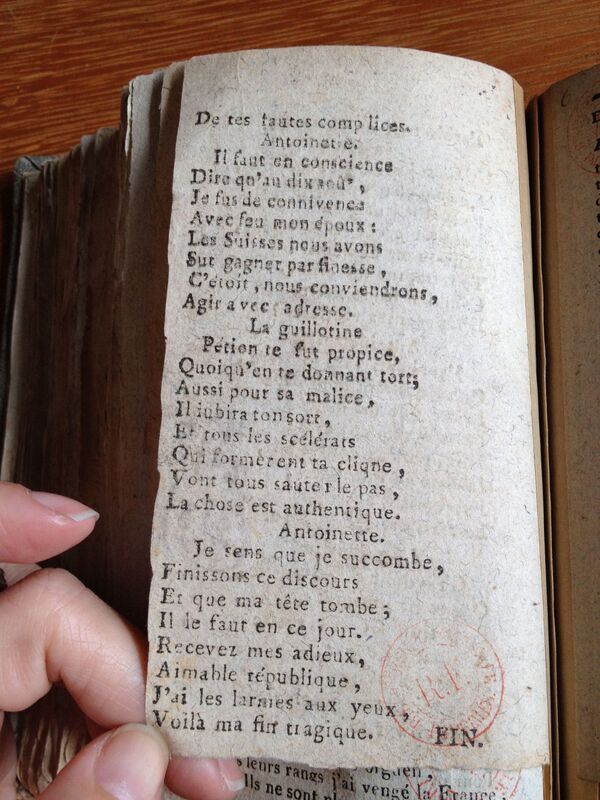 De tes fautes complices.
Antoinette.
Il faut en conscience
Dire qu'au dix aoû*,
Je fus de connivence
Avec feu mon époux :
Les Suisses nous avons
Sut gagner par finesse,
C'étoit, nous conviendrons,
Agir avec adresse.
La guillotine
Pétion te fut propice,
Quoiqu'en te donnant tort;
Aussi pour sa malice,
Il iubira ton sort,
Et tous les scélérats
Qui formèrent ta cliqne,
Vont tous sauter le pas,
La chose est authentique.
Antoinette.
Je sens que je succombe,
Finissons ce discours
Et que ma tête tombe;
Il le faut en ce jour.
Recevez mes adieux,
Aimable république,
J'ai les larmes aux yeux,
Voilà ma fin tragique.
FIN.
R.F.
leurs rangs j'ai vengé la France;
Ils ne sont